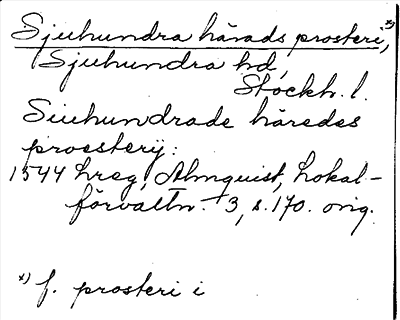 Sjuhundra härads prosteri,*)
Sjuhundra hd,
Stockh. l.
Siuhundrade häredes
proesterij:
1544 hreg, Almquist, Lokal-
förvaltn. 3, s. 170. orig.
*) f. prosteri i